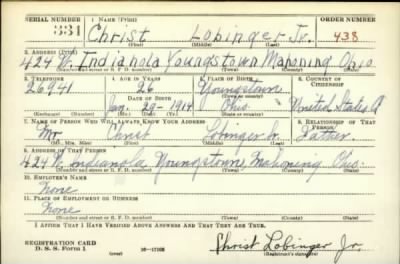 SERIAL NUMBER 1. NAME (Print) ORDER NUMBER
331 Christ Lobinger Jr. 438
(First) (Middle) (Last)
2. ADDRESS (Print)
424 W. Indianola Youngstown Mahoning Ohio
(Number and street or R. F. D. number) (Town) (County) (State)
3. TELEPHONE 4. AGE IN YEARS 5. PLACE OF BIRTH 6. COUNTRY OF CITIZENSHIP
26941 26 Youngstown
DATE OF BIRTH (Town or county)
Jan. 29 - 1914 Ohio United States
(Exchange) (Number) (Mo.) (Day) (Yr.) (State or country)
7. NAME OF PERSON WHO WILL ALWAYS KNOW YOUR ADDRESS 8. RELATIONSHIP OF THAT PERSON
Mr Christ Lobinger Sr. Father
(Mr., Mrs., Miss) (First) (Middle) (Last)
9. ADDRESS OF THAT PERSON
424 W Indianola Youngstown Mahoning Ohio.
(Number and street or R. F. D. number) (Town) (County) (State)
10. EMPLOYER'S NAME
None
11. PLACE OF EMPLOYMENT OR BUSINESS
None
(Number and street or R. F. D. number) (Town) (County) (State)
I AFFIRM THAT I HAVE VERIFIED ABOVE ANSWERS AND THAT THEY ARE TRUE.
REGISTRATION CARD
D. S. S. Form 1 (over) Christ Lobinger Jr.